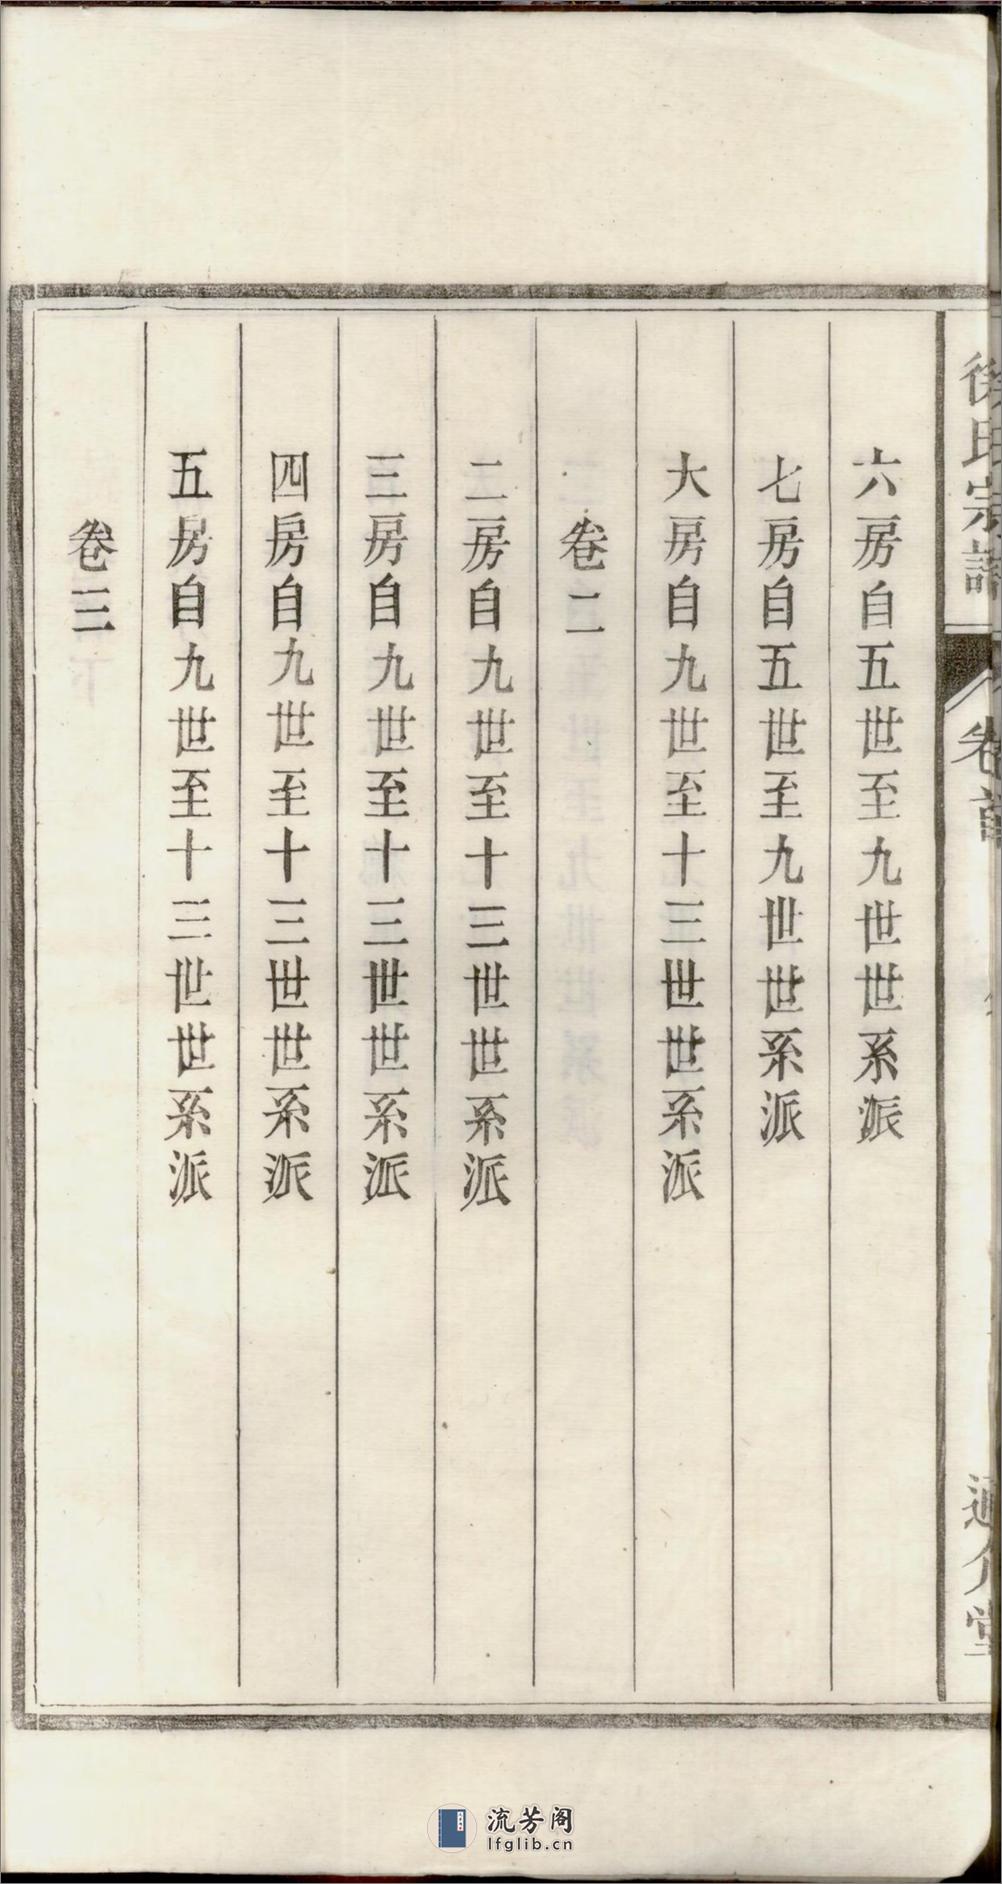 徐氏宗譜
卷首
通介堂
六房自五世至九世世系派
七房自五世至九世世系派
大房自九世至十三世世系派
卷二
二房自九世至十三世世系派
三房自九世至十三世世系派
四房自九世至十三世世系派
五房自九世至十三世世系派
卷三
流芳阁
lfglib.cn